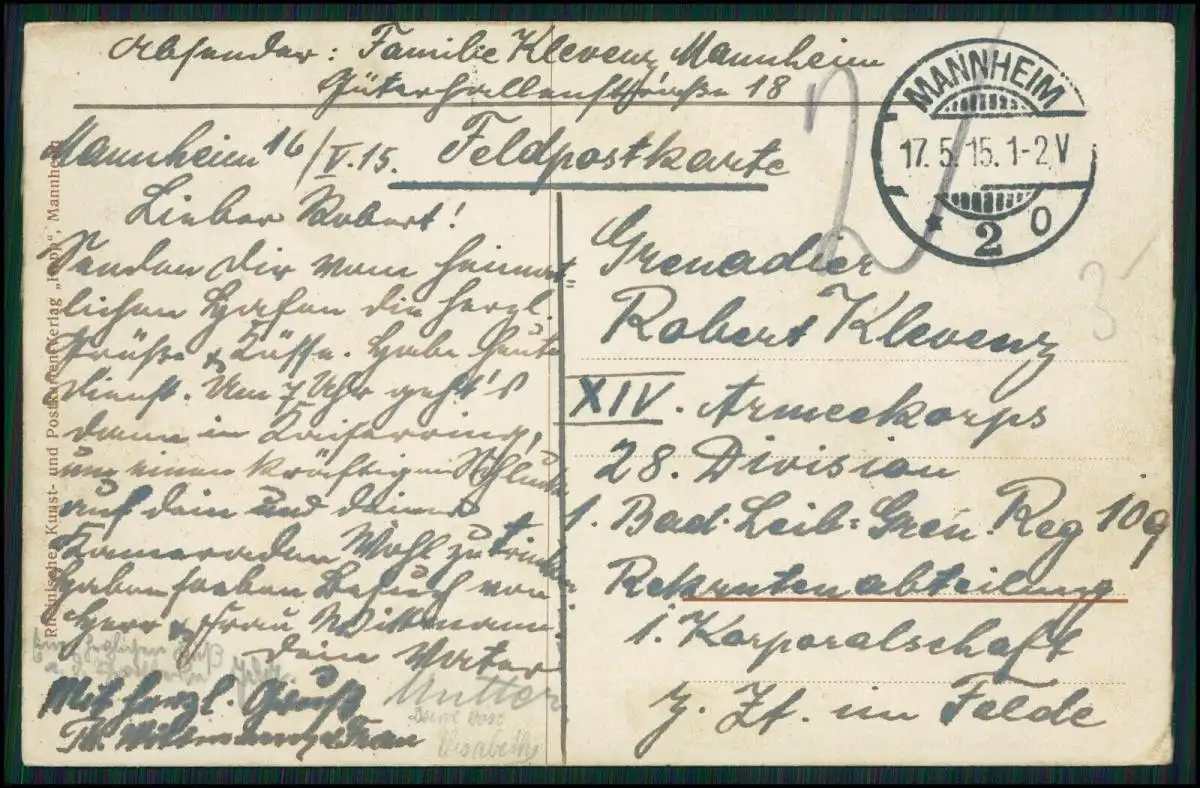 Absender: Familie Klevenz Mannheim
Güterhallenstraße 18
Mannheim 16/V.15.
Feldpostkarte
Lieber Robert!
Senden dir vom heimat-
lichen Hafen die herzl.
Grüße & Küsse. Habe heute
Dienst. Um 7 Uhr geht's
dann in Kaiserring,
um einen kräftigen Schluck
auf dein und deiner
Kameraden Wohl zu trinken.
Haben soeben Besuch von
Herr & Frau Wittmann.
dein Vater
Mutter
Mit herzl. Gruß
Wittmann & Frau
Deine
MANNHEIM
17. 5. 15. 1-2 V
* 2 o
Grenadier
Robert Klevenz
XIV. Armeekorps
28. Division
1. Bad. Leib-Gren. Reg 109
Rekrutenabteilung
1. Korporalschaft
z. Zt. im Felde
2
3
Rheinischer Kunst- und Postkarten-Verlag, Mannheim